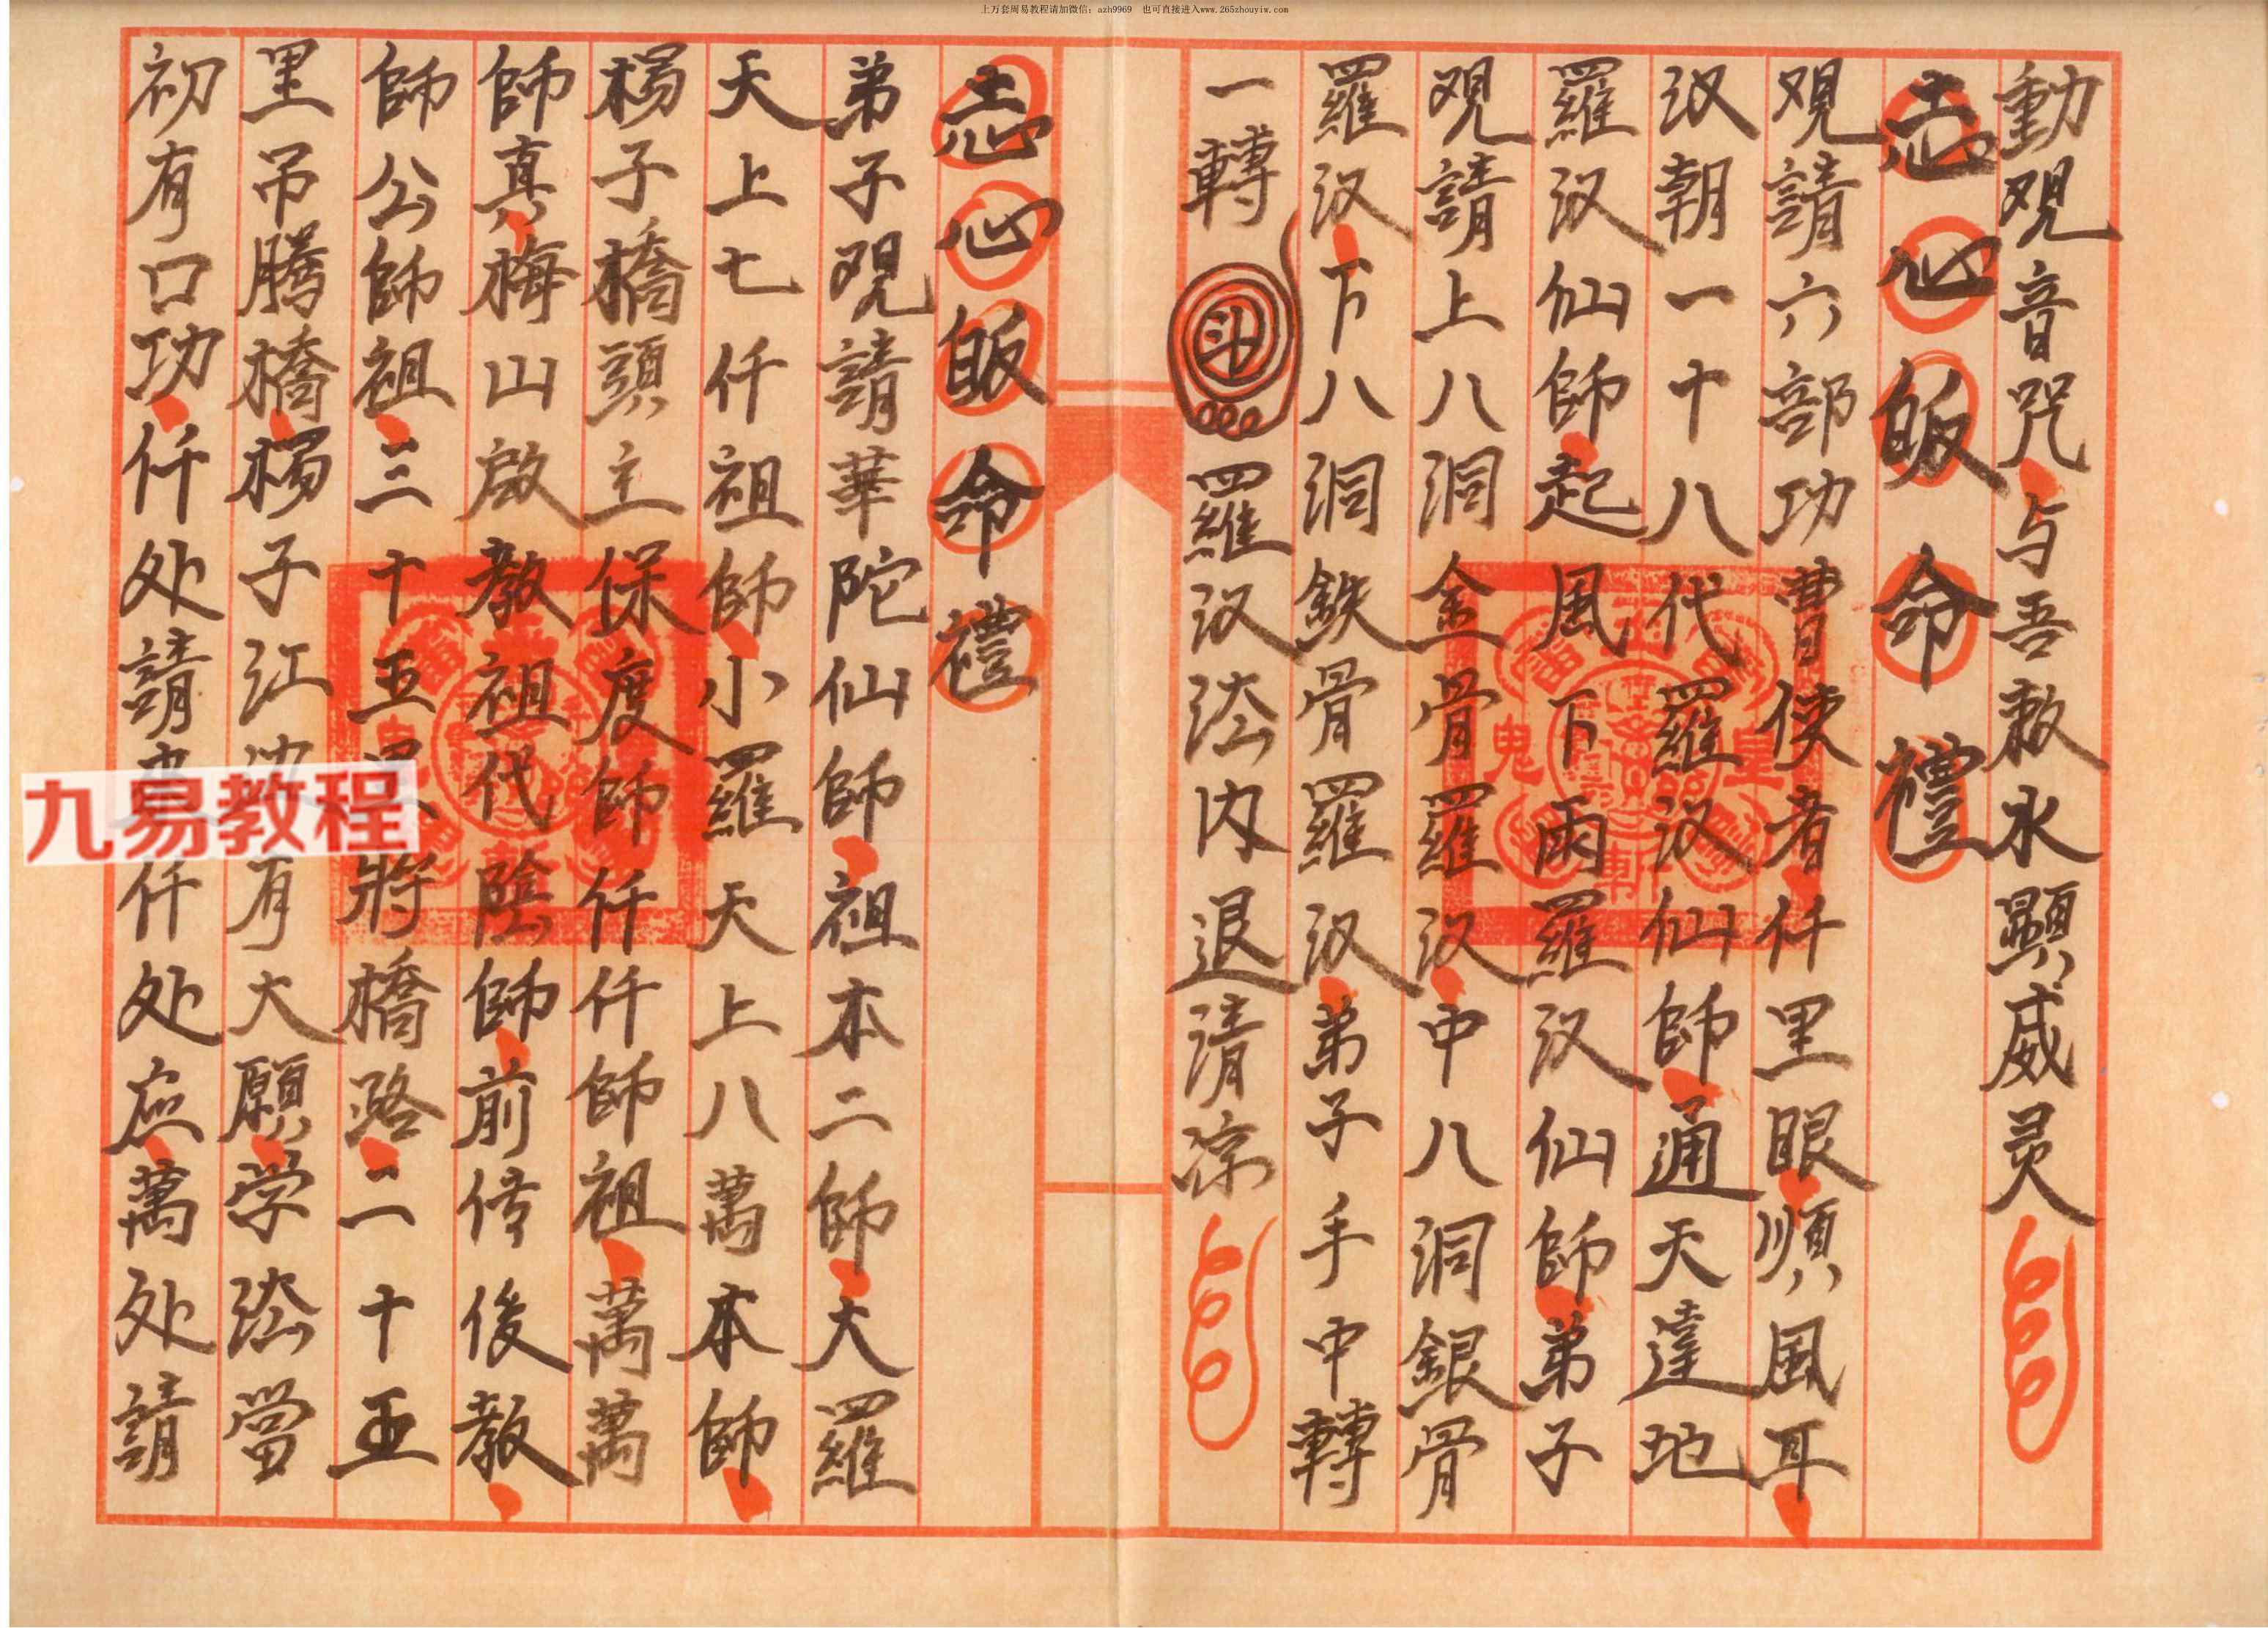 上万套周易教程请加微信：azh9969　也可直接进入www.265zhouyiw.com
動观音咒与吾敕水顯威灵
志心皈命禮
观請六部功曹使者仟里眼順風耳
汉朝一十八代羅汉仙師通天達地
羅汉仙師起風下雨羅汉仙師弟子
观請上八洞金骨羅汉中八洞銀骨
羅汉下八洞鉄骨羅汉弟子手中轉
一轉 羅汉法内退清凉
志心皈命禮
弟子观請華陀仙師祖本二師大羅
天上七仟祖師小羅天上八萬本師
楊子橋頭主保度師仟仟師祖萬萬
師真梅山啟教祖代陰師前传後教
師公師祖三十五 將橋路二十五
里吊腾橋楊子江 有大願学法當
初有口功仟处請 仟处应萬处請
九易教程